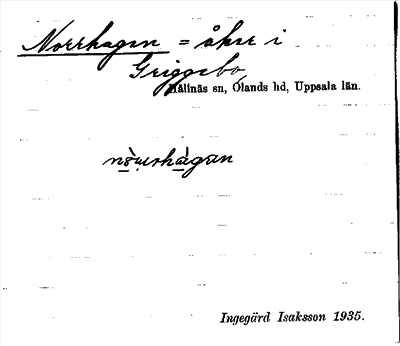 Norrhagen = åker i
Griggebo,
Hållnäs sn, Olands hd, Uppsala län.
Ingegärd Isaksson 1935.